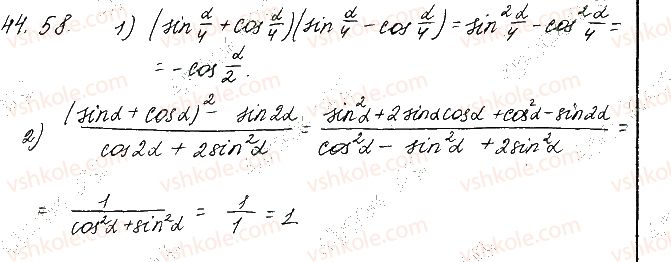 44.58. 1) (sin α/4 + cos α/4)(sin α/4 - cos α/4) = sin² α/4 - cos² α/4 =
= - cos α/2.
2) ((sinα + cosα)² - sin2α)/(cos2α + 2sin²α) = (sin²α + 2sinαcosα + cos²α - sin2α)/(cos²α - sin²α + 2sin²α) =
= 1/(cos²α + sin²α) = 1/1 = 1
vshkole.com